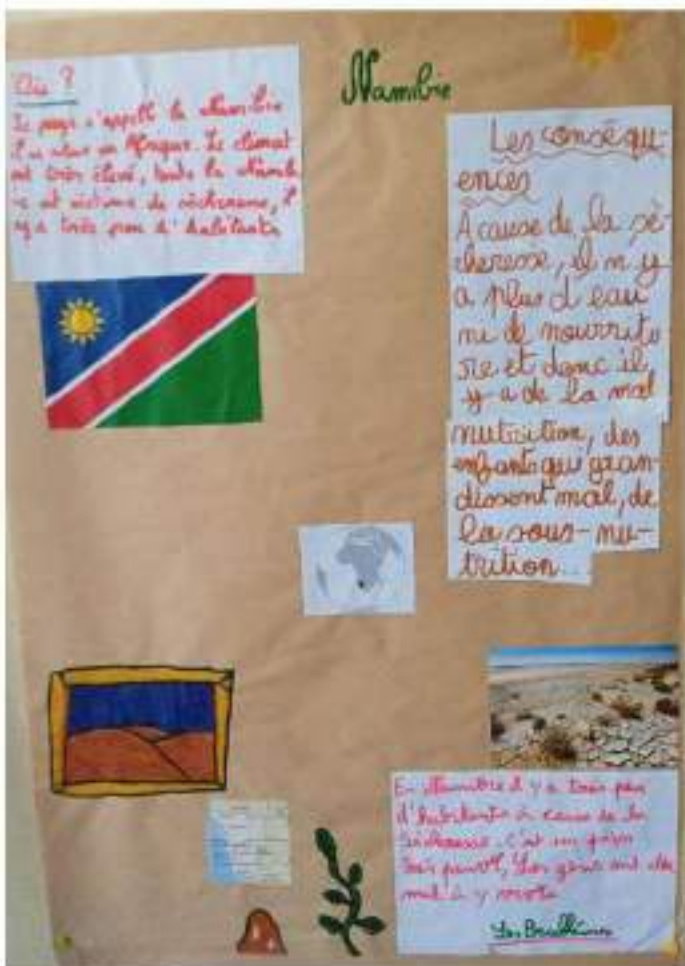 Namibie
Où ?
Le pays s'appell la Namibie
en Afrique. Le climat
est très élevé, toute la Namib
ie est victime de sécheresse, il
y a très peu d'habitants
Les conséqu-
ences
À cause de la sé-
cheresse, il n y
a plus d eau
ni de nourritu
re et donc il
y a de la mal
nutrition, des
enfants qui gran-
dissent mal, de
la sous-nu-
trition...
En Namibie il y a très peu
d'habitants à cause de la
sécheresse. C'est un pays
très Les gens ont du
mal à y
Les